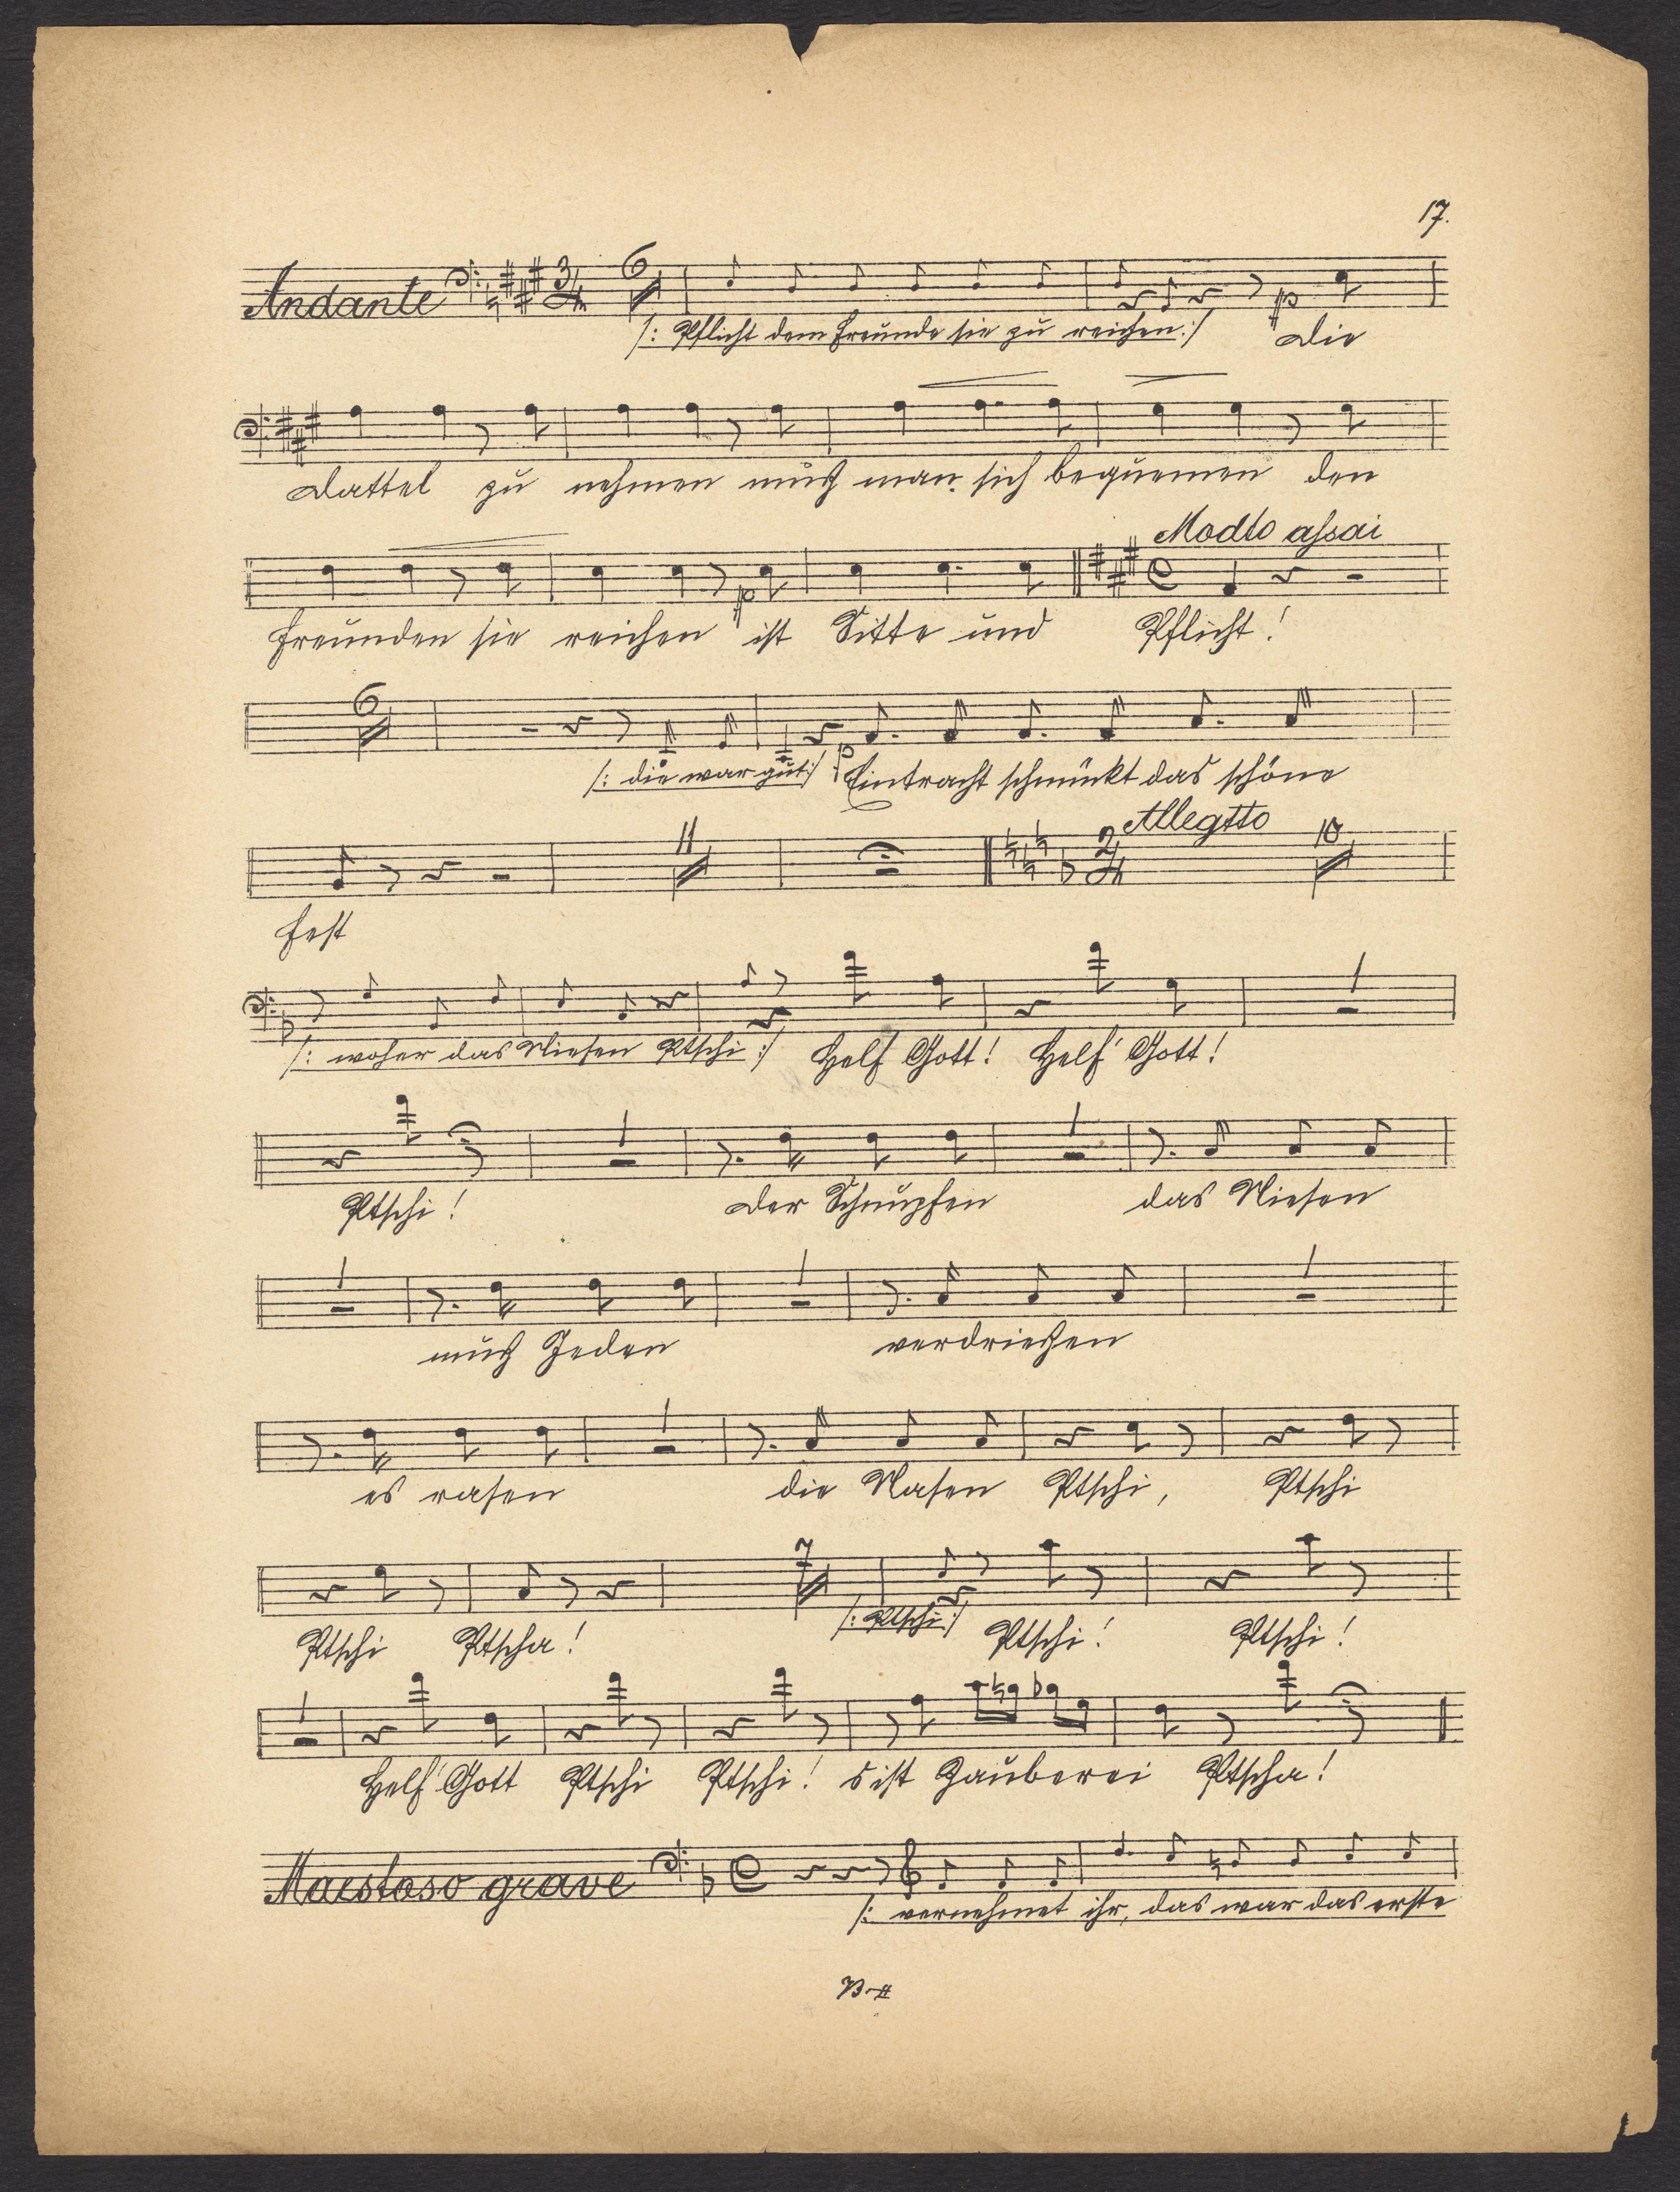 17.
Andante 3/4 6
/: Pflicht dem Freunde sie zu reichen :/ p Die
Dattel zu nehmen muß man sich bequemen den
Modto assai
Freunden sie reichen p ist Sitte und Pflicht!
6
/: die war gut :/ p Eintracht schmückt das schöne
Allegtto
11 2/4 18
Fest
/: woher das Niesen Ptschi :/ Helf Gott! Helf' Gott!
Ptschi! Der Schnupfen das Niesen
muß Jeden verdrießen
es rasen die Nasen Ptschi, Ptschi
7
Ptschi Ptscha! /: Ptschi :/ Ptschi! Ptschi!
Helf' Gott Ptschi Ptschi! s ist Zauberei Ptscha!
Maestoso grave
/: vernehmet ihr, das war das erste